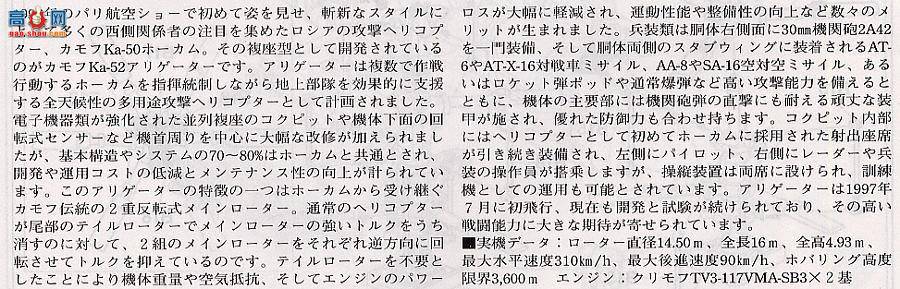 年のパリ航空ショーで初めて姿を見せ、斬新なスタイルに
くの西側関係者の注目を集めたロシアの攻撃ヘリコプ
ター、カモフKa-50ホーカム。その複座型として開発されている
のがカモフKa-52アリゲーターです。アリゲーターは複数で作戦
行動するホーカムを指揮統制しながら地上部隊を効果的に支援
する全天候性の多用途攻撃ヘリコプターとして計画されました。
電子機器類が強化された並列複座のコクピットや機体下面の回
転式センサーなど機首周りを中心に大幅な改修が加えられまし
たが、基本構造やシステムの70〜80%はホーカムと共通とされ、
開発や運用コストの低減とメンテナンス性の向上が計られてい
ます。このアリゲーターの特徴の一つはホーカムから受け継ぐ
カモフ伝統の２重反転式メインローター。通常のヘリコプター
が尾部のテイルローターでメインローターの強いトルクをうち
消すのに対して、２組のメインローターをそれぞれ逆方向に回
転させてトルクを抑えているのです。テイルローターを不要と
したことにより機体重量や空気抵抗、そしてエンジンのパワー
ロスが大幅に軽減され、運動性能や整備性の向上など数々のメ
リットが生まれました。兵装類は胴体右側面に30mm機関砲2A42
を一門装備、そして胴体両側のスタブウィングに装着されるAT-
6やAT-X-16対戦車ミサイル、AA-8やSA-16空対空ミサイル、ある
いはロケット弾ポッドや通常爆弾など高い攻撃能力を備えると
ともに、機体の主要部には機関砲弾の直撃にも耐える頑丈な装
甲が施され、優れた防御力も合わせ持ちます。コクピット内部
にはヘリコプターとして初めてホーカムに採用された射出座席
が引き続き装備され、左側にパイロット、右側にレーダーや兵
装の操作員が搭乗しますが、操縦装置は両席に設けられ、訓練
機としての運用も可能とされています。アリゲーターは1997年
７月に初飛行、現在も開発と試験が続けられており、その高い
戦闘能力に大きな期待が寄せられています。
■実機データ：ローター直径14.50m、全長16m、全高4.93m、
最大水平速度310km/h、最大後進速度90km/h、ホバリング高度
限界3,600m　エンジン：クリモフTV3-117VMA-SB3×２基